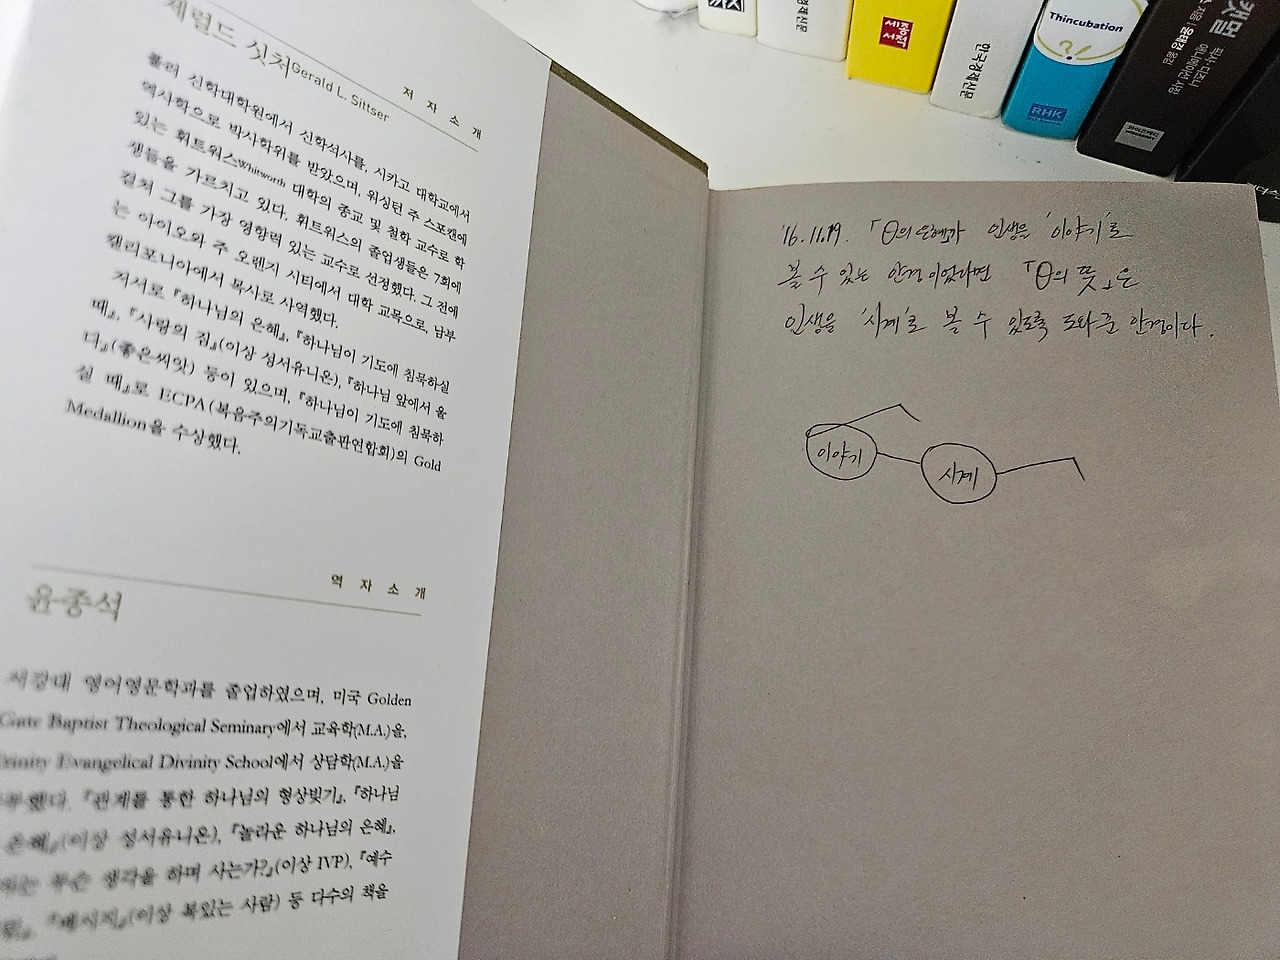 제럴드 싯처 Gerald L. Sittser
저 자 소 개
풀러 신학대학원에서 신학석사를, 시카고 대학교에서
역사학으로 박사학위를 받았으며, 워싱턴 주 스포캔에
있는 휘트워스Whitworth 대학의 종교 및 철학 교수로 학
생들을 가르치고 있다. 휘트워스의 졸업생들은 7회에
걸쳐 그를 가장 영향력 있는 교수로 선정했다. 그 전에
는 아이오와 주 오렌지 시티에서 대학 교목으로, 남부
캘리포니아에서 목사로 사역했다.
저서로 『하나님의 은혜』, 『하나님이 기도에 침묵하실
때』, 『사랑의 짐』(이상 성서유니온), 『하나님 앞에서 울
다』(좋은씨앗) 등이 있으며, 『하나님이 기도에 침묵하
실 때』로 ECPA(복음주의기독교출판연합회)의 Gold
Medallion을 수상했다.
역 자 소 개
윤종석
서강대 영어영문학과를 졸업하였으며, 미국 Golden
Gate Baptist Theological Seminary에서 교육학(M.A.)을,
Trinity Evangelical Divinity School에서 상담학(M.A.)을
했다. 『관계를 통한 하나님의 형상빚기』, 『하나님
은혜』(이상 성서유니온), 『놀라운 하나님의 은혜』,
무슨 생각을 하며 사는가?』(이상 IVP), 『예수
『메시지』(이상 복있는 사람) 등 다수의 책을
'16.11.19. 「Θ의 은혜」가 인생을 '이야기'로
볼 수 있는 안경이었다면 「Θ의 뜻」은
인생을 '시계'로 볼 수 있도록 도와준 안경이다.
이야기
시계
세종
서적
한국경제신문
Thincubation
RHK
캣멀
픽사·디즈니
애니메이션 사장